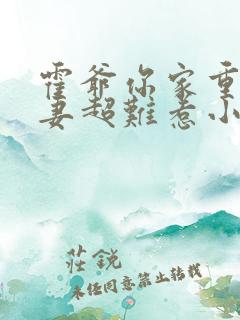 霍爷你家重
妻超難惹小
莊銳
未经同意禁止转载